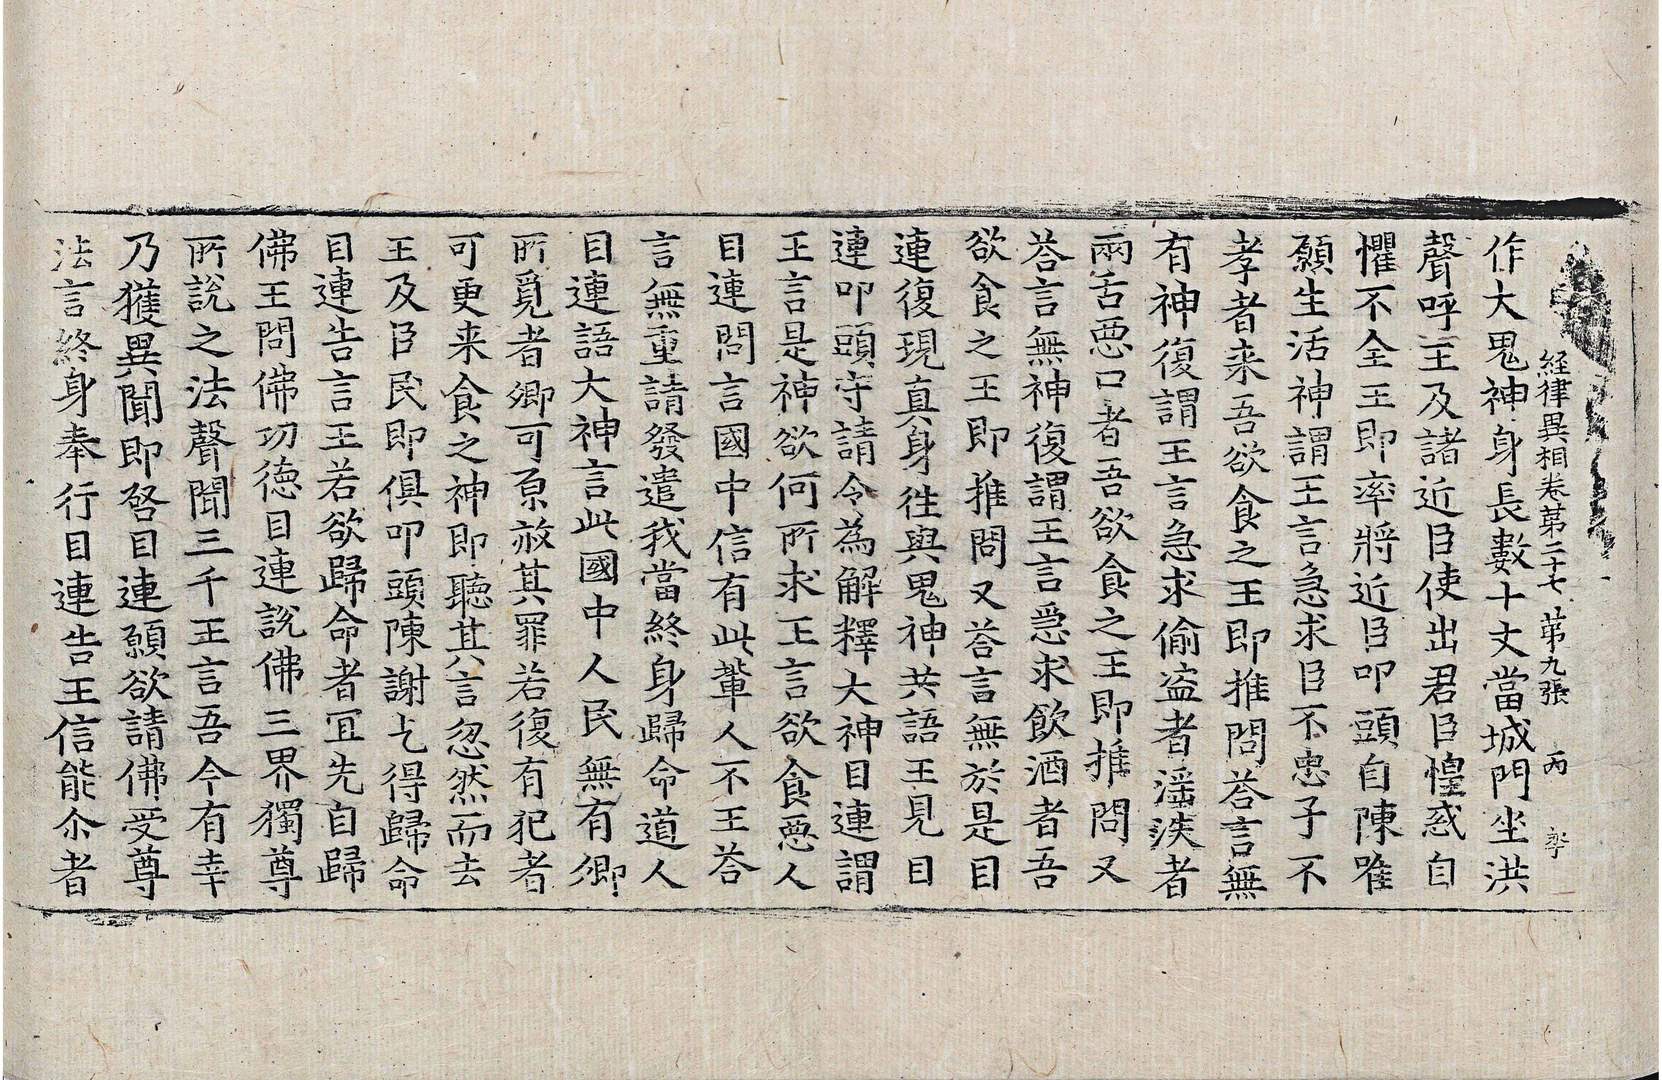 経律異相卷第二十七 第九張 丙
作大鬼神身長數十丈當城門坐洪
聲呼王及諸近臣使出君臣惶惑自
懼不全王即率將近臣叩頭自陳唯
願生活神謂王言急求臣不忠子不
孝者来吾欲食之王即推問荅言無
有神復謂王言急求偷盗者滛泆者
兩舌惡口者吾欲食之王即推問又
荅言無神復謂王言急求飲酒者吾
欲食之王即推問又荅言無於是目
連復現真身徃與鬼神共語王見目
連叩頭守請令為解釋大神目連謂
王言是神欲何所求王言欲食惡人
目連問言國中信有此輩人不王荅
言無重請發遣我當終身歸命道人
目連語大神言此國中人民無有卿
所覓者卿可原赦其罪若復有犯者
可更来食之神即聽其言忽然而去
王及臣民即俱叩頭陳謝乞得歸命
目連告言王若欲歸命者冝先自歸
佛王問佛功徳目連說佛三界獨尊
所說之法聲聞三千王言吾今有幸
乃獲異聞即啓目連願欲請佛受尊
法言終身奉行目連告王信能尒者